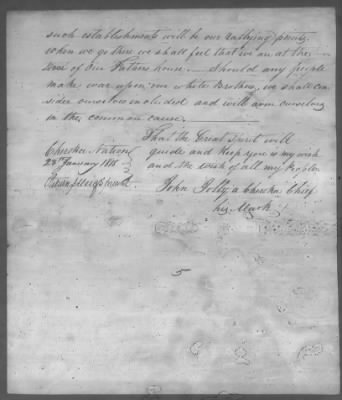 such establishments will be our rallying points
when we go there we shall feel that we are at the
door of our Fathers house. Should any people
make war upon our white Brothers, we shall con
sider ourselves included and will arm ourselves
in the common cause.
That the Great Spirit will
guide and keep you is my wish
and the wish of all my People
Cherokee Nation
28th January 1818
John Jolly, a Cherokee Chief
his Mark
5